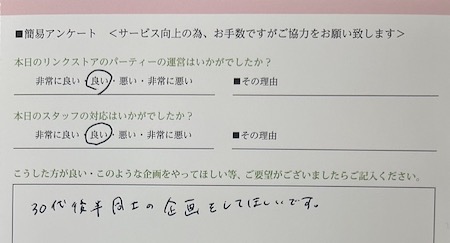 ■簡易アンケート ＜サービス向上の為、お手数ですがご協力をお願い致します＞
本日のリンクストアのパーティーの運営はいかがでしたか？
非常に良い・良い・悪い・非常に悪い ■その理由
本日のスタッフの対応はいかがでしたか？
非常に良い・良い・悪い・非常に悪い ■その理由
こうした方が良い・このような企画をやってほしい等、ご要望がございましたらご記入ください。
30代後半同士の企画をしてほしいです。